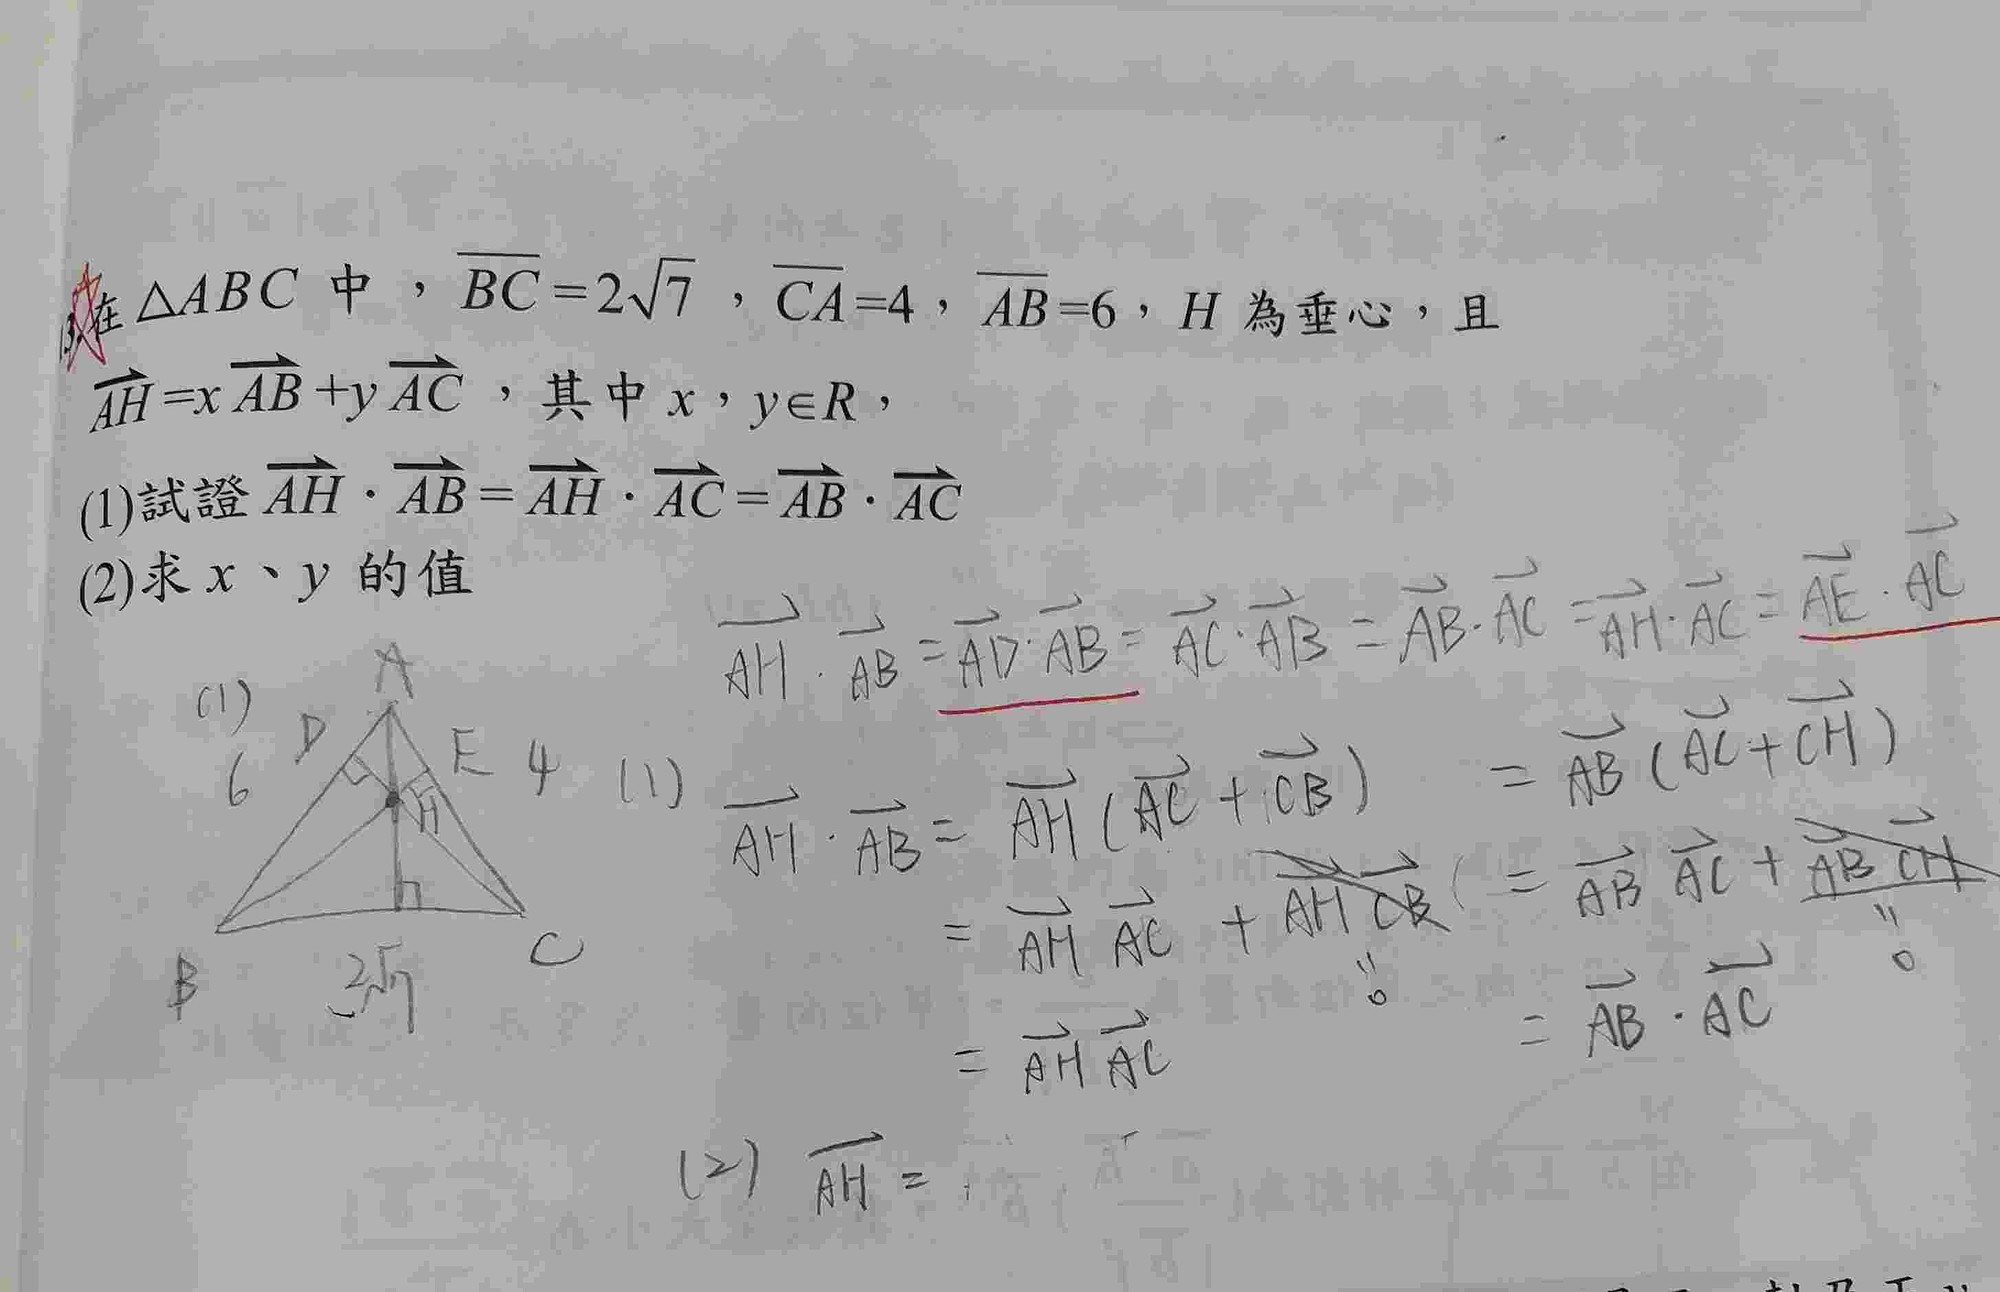 在△ABC 中，BC=2√7，CA=4，AB=6，H 為垂心，且
AH=xAB+yAC，其中 x，y∈R，
(1)試證 AH·AB=AH·AC=AB·AC
(2)求 x、y 的值
AH·AB=AD·AB=AC·AB=AB·AC=AH·AC=AE·AC
(1)
A
D
E
6
4
H
B
C
(1) AH·AB=AH(AC+CB) =AB(AC+CH)
=AH AC+AH CB =AB AC+AB CH
0 0
=AH AC =AB·AC
(2) AH=